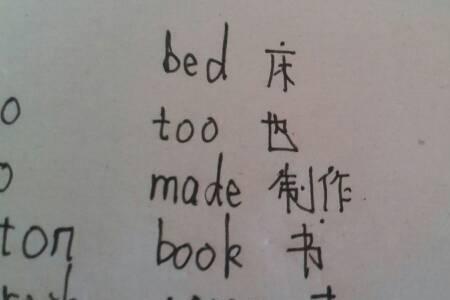 bed 床
too 也
made 制作
ton book 书